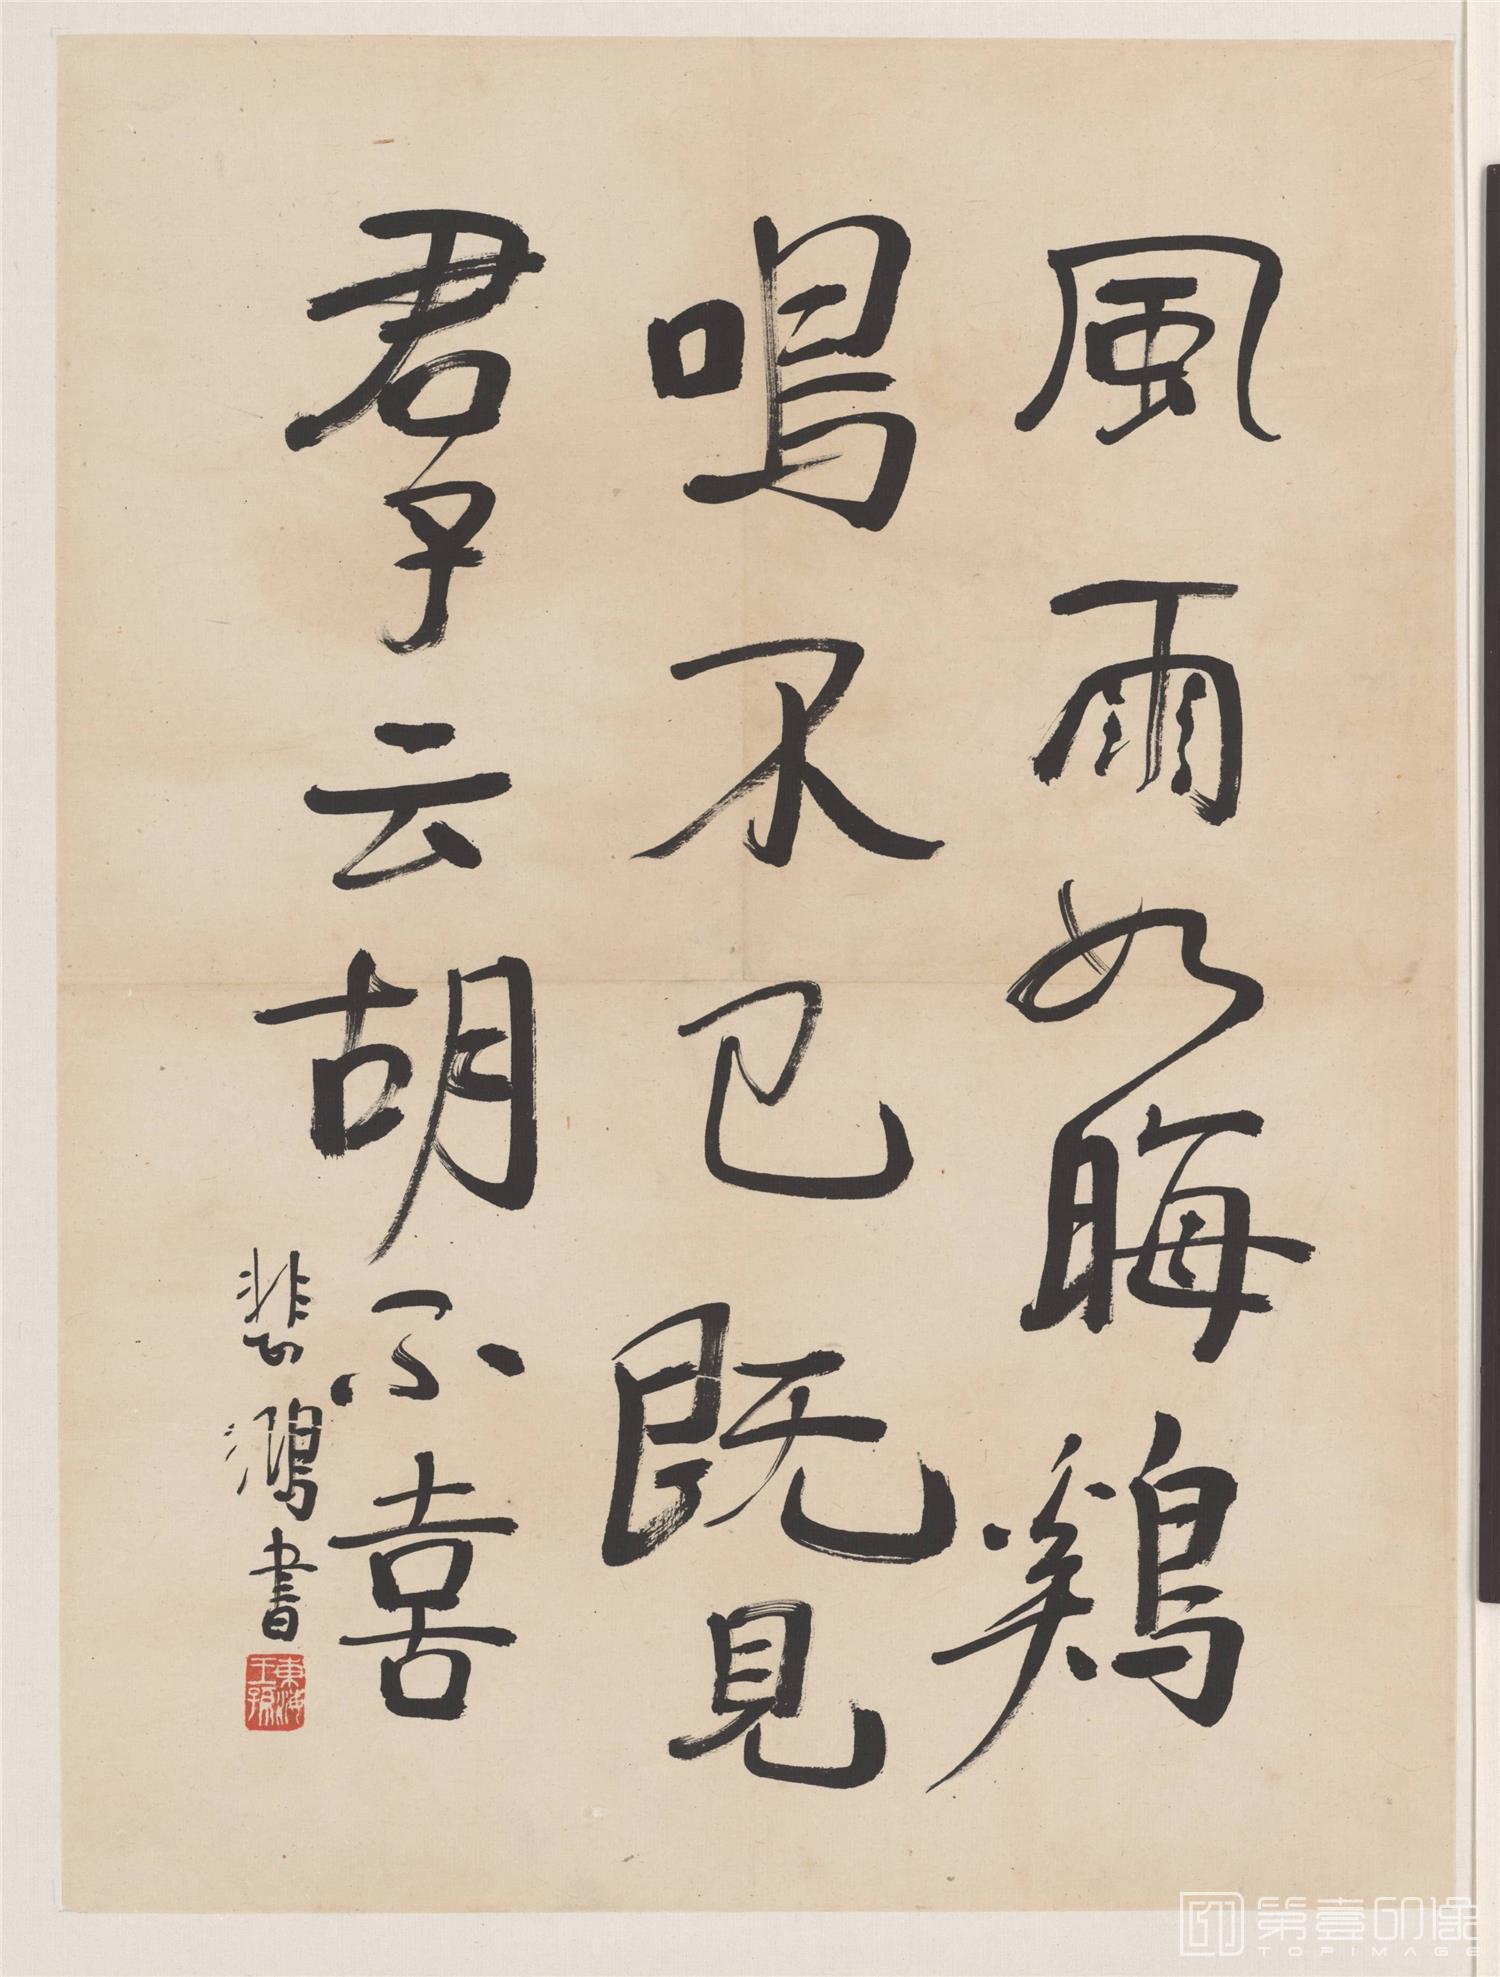 風雨如晦鷄
鳴不已既見
君子云胡不喜
悲鴻書
東海王孫
第壹印像
TOPIMAGE